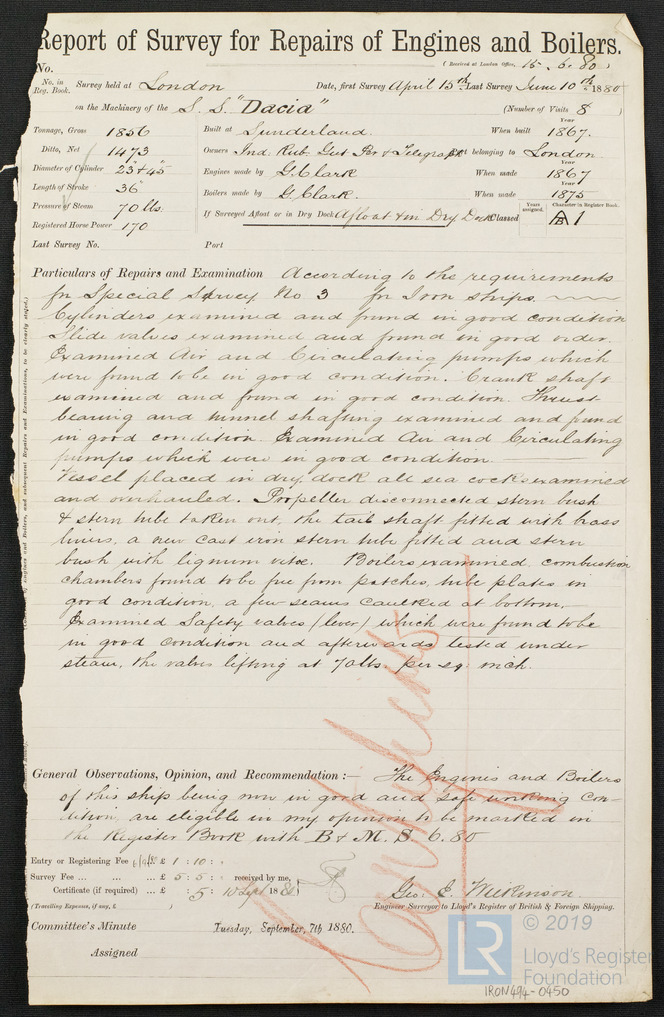 Report of Survey for Repairs of Engines and Boilers.
(Received at London Office, 15. 6. 80)
No.
No. in Reg. Book. Survey held at London Date, first Survey April 15th Last Survey June 10th 1880
on the Machinery of the S. S. "Dacia" (Number of Visits 8)
Tonnage, Gross 1856 Built at Sunderland. When built Year 1867.
Ditto, Net 1473 Owners Ind. Rub. Gut Per & Telegraph Port belonging to London
Diameter of Cylinder 23" & 45" Engines made by G. Clark When made Year 1867
Length of Stroke 36" Boilers made by G. Clark. When made Year 1875
Pressure of Steam 70 lbs. If Surveyed Afloat or in Dry Dock Afloat & in Dry Dock Classed Years assigned. Character in Register Book. A 1
Registered Horse Power 170
Last Survey No. Port
Particulars of Repairs and Examination According to the requirements
for Special Survey No 3 for Iron ships.
Cylinders examined and found in good condition
Slide valves examined and found in good order.
Examined Air and Circulating pumps which
were found to be in good condition. Crank shaft
examined and found in good condition. Thrust
bearing and tunnel shafting examined and found
in good condition. Examined Air and Circulating
pumps which were in good condition.
Vessel placed in dry dock all sea cocks examined
and overhauled. Propeller disconnected stern bush
& stern tube taken out, the tail shaft fitted with brass
liners, a new cast iron stern tube fitted and stern
bush with lignum vitae. Boilers examined, combustion
chambers found to be free from patches, tube plates in
good condition, a few seams caulked at bottom.
Examined Safety valves (lever) which were found to be
in good condition and afterwards tested under
steam, the valves lifting at 70 lbs per sq. inch.
General Observations, Opinion, and Recommendation:— The Engines and Boilers
of this ship being now in good and safe working con-
dition, are eligible in my opinion to be marked in
the Register Book with B & M. S 6. 80
Entry or Registering Fee £ 1 : 10 :
Survey Fee ... ... ... £ 5 : 5 : received by me,
Certificate (if required) ... £ : 5 : 10 Sept 1880
(Travelling Expenses, if any, £ )
Geo: E. Wilkinson.
Engineer Surveyor to Lloyd's Register of British & Foreign Shipping.
Committee's Minute Tuesday, September, 7th 1880.
Assigned
© 2019
LR
Lloyd's Register
Foundation
IRON494-0450